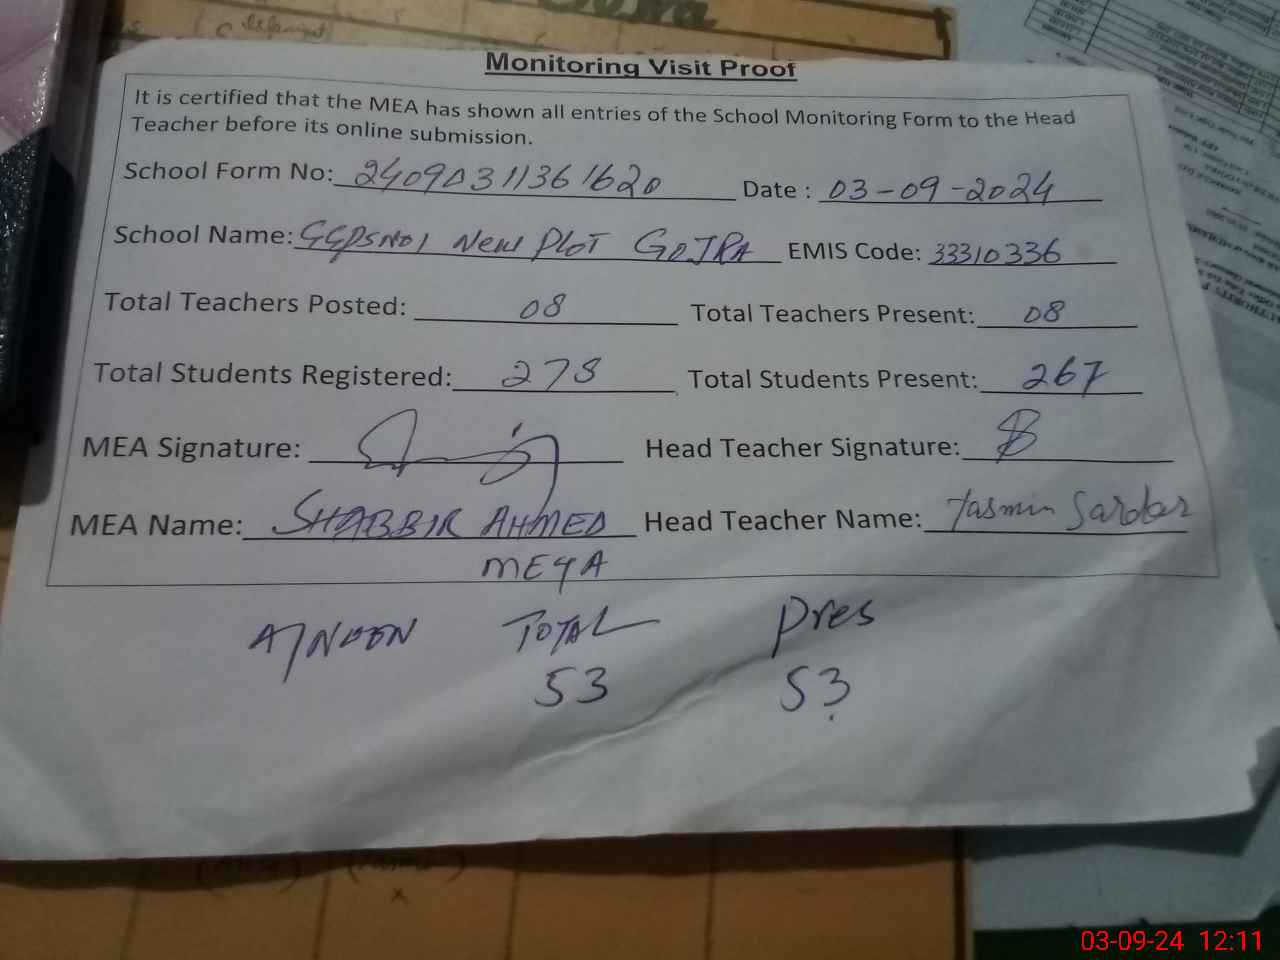 Monitoring Visit Proof
It is certified that the MEA has shown all entries of the School Monitoring Form to the Head
Teacher before its online submission.
School Form No: 24090311361620 Date : 03-09-2024
School Name: GGPSNO1 New PLOT GOJRA EMIS Code: 33310336
Total Teachers Posted: 08 Total Teachers Present: 08
Total Students Registered: 278 Total Students Present: 267
MEA Signature: Head Teacher Signature:
MEA Name: SHABBIR AHMED Head Teacher Name: Yasmin Sardar
ME4A
A/NOON TOTAL Pres
53 53
03-09-24 12:11